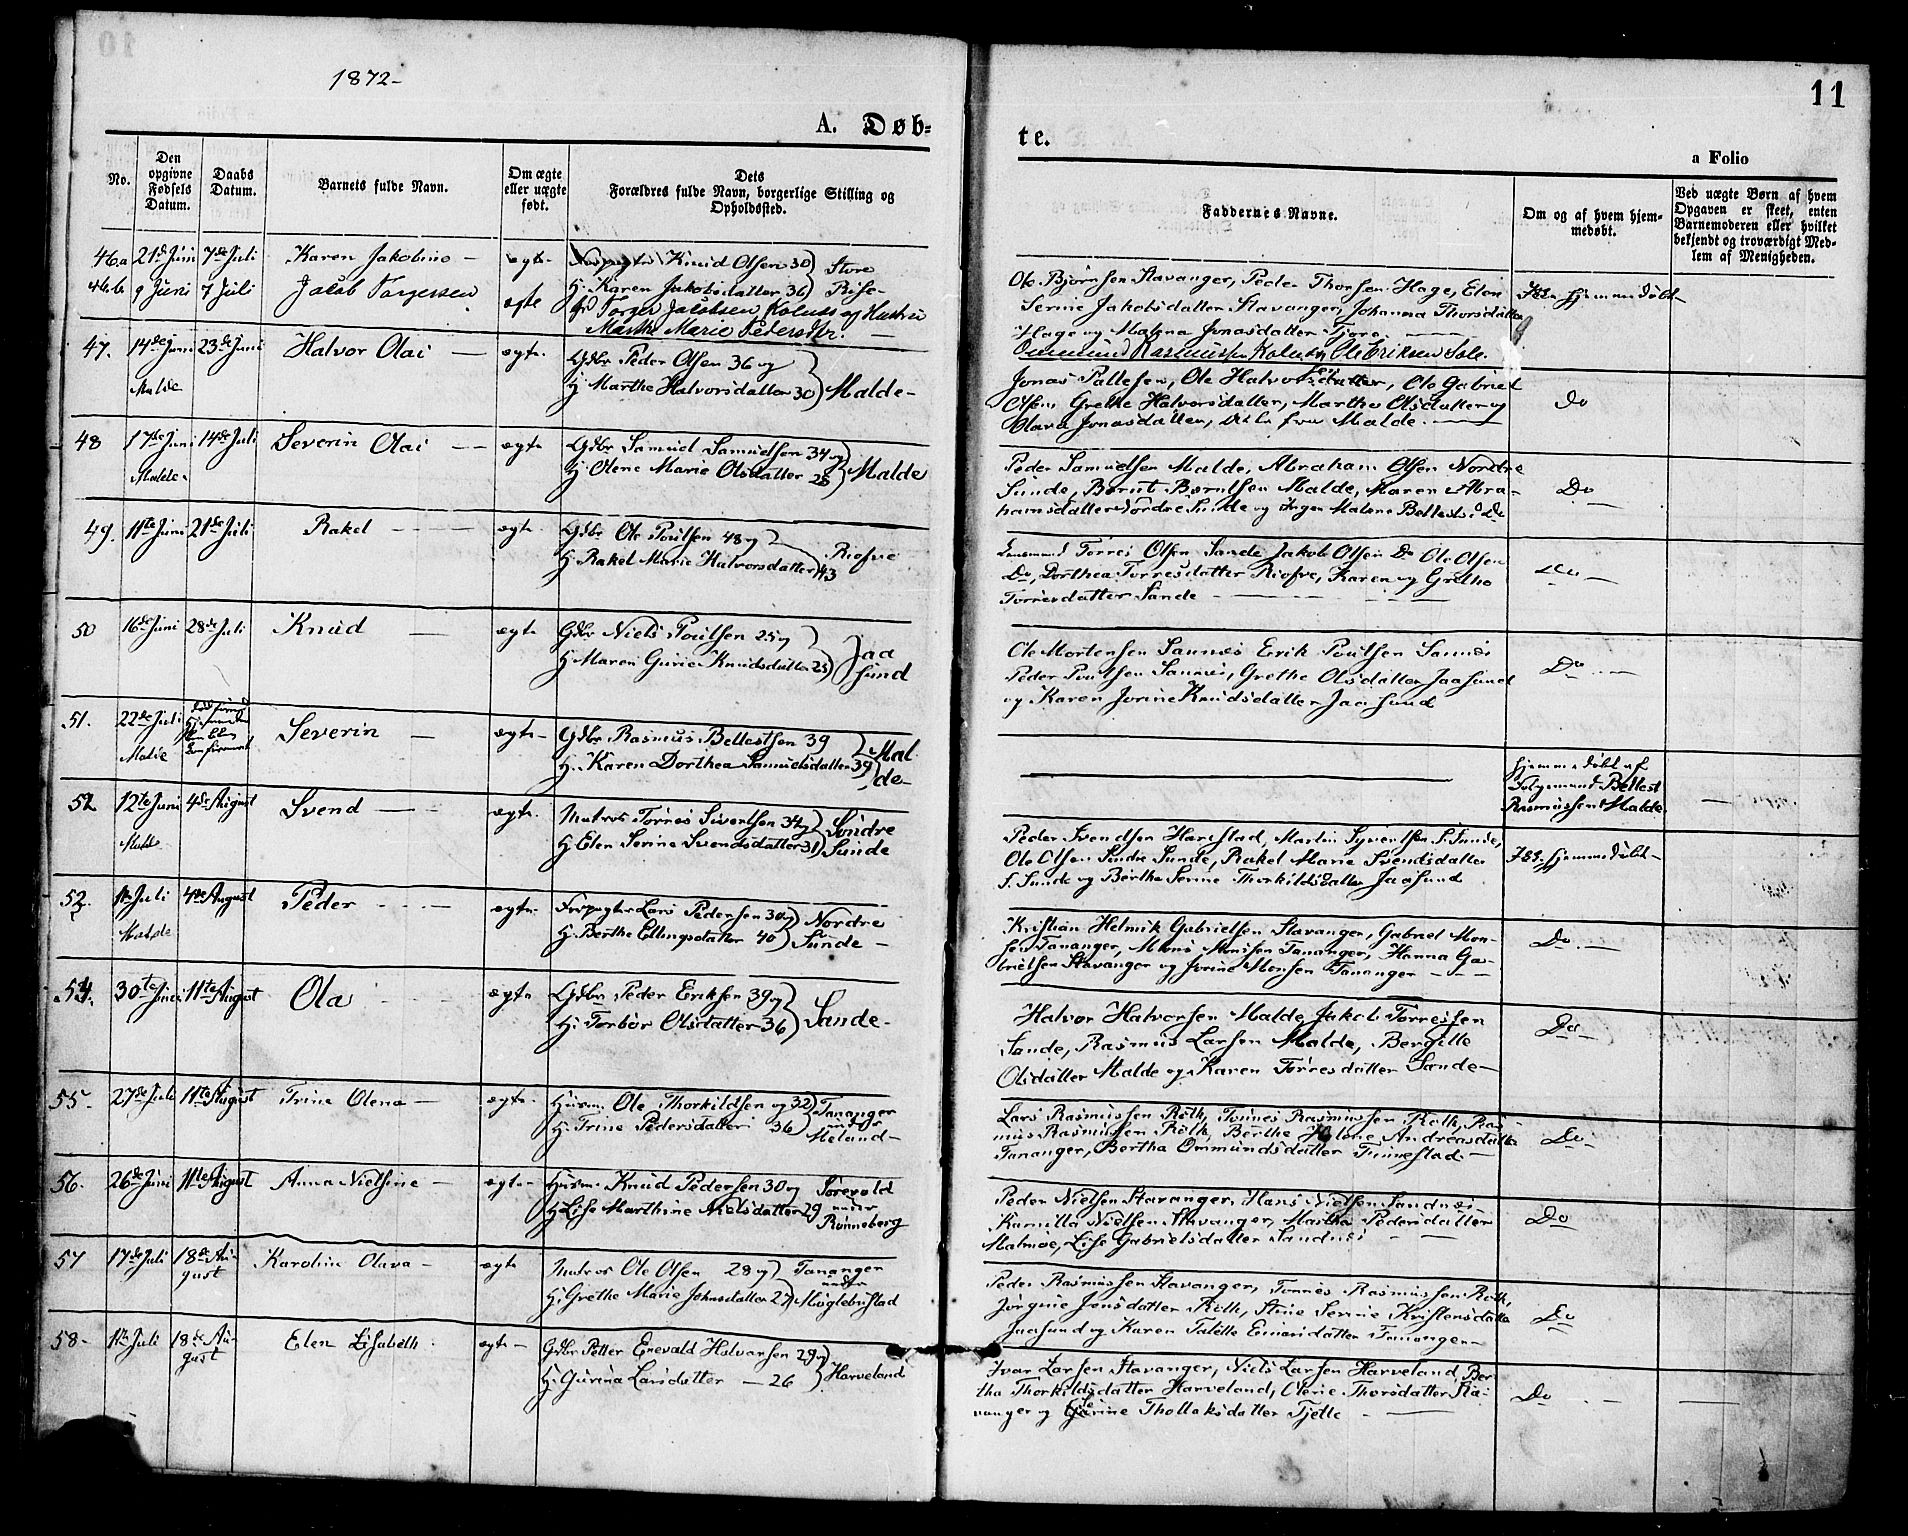 1872-
11
A. Døb-
te.
a Folio
No.
Den opgivne Fødsels Datum.
Daabs Datum.
Barnets fulde Navn.
Om ægte eller uægte født.
Dets
Forældres fulde Navn, borgerlige Stilling og
Opholdssted.
Faddernes Navne.
Om og af hvem hjem-
medøbt.
Ved uægte Børn af hvem
Opgaven er skeet, enten
Barnemoderen eller hvilket
bekjendt og troværdigt Med-
lem af Menigheden.
46a 21de Juni 7de Juli Karen Jakobine - ægte Forpagter Knud Olsen 30 Store
H. Karen Jakobsdatter 36 Risc-
46b 9 Juni 7 Juli Jacob Torgersen ægte Torger Jacobsen Kolnes og Hustru
Marthe Marie Pedersdtr.
Ole Bjørnsen Stavanger, Peder Thorsen Hage, Elen
Serine Jakobsdatter Stavanger, Johanna Thorsdatter
Hage og Malena Jonasdatter Tjora.
Ommund Rasmussen Kolnes, Ole Eriksen Sole.
Hjemmedøbt-
47. 14de Juni 23de Juni Halvor Olai - ægte. Gdbr Peder Olsen 36 og
Malde H. Marthe Halvorsdatter 30 Malde-
Jonas Pallesen, Ole Halvorsdatter, Ole Gabriel
Olsen, Grethe Halvorsdatter, Marthe Olsdatter og
Olava Jonasdatter, Alle fra Malde.
Do
48 17de Juni 14de Juli Severin Olai - ægte Gdbr Samuel Samuelsen 34 og
Malde- H. Olene Marie Olsdatter 28 Malde
Peder Samuelsen Malde, Abraham Olsen Nordre
Sunde, Bernt Berntsen Malde, Maren Abra-
hamsdatter Nordre Sunde og Inger Malene Bellestsd Do
Do
49. 11te Juni 21de Juli Rakel - ægte Gdbr Ole Poulsen 48 og
H. Rakel Marie Halvorsdatter 43 Risnve
Torres Olsen Sande, Jakob Olsen Do Ole Olsen
Do, Dorthea Torresdatter Risnve, Karen og Grethe
Torresdatter Sande
Do
50 16de Juni 28de Juli Knud - ægte Gdbr Niels Poulsen 25 og
H. Maren Gurie Knudsdatter 25 Jaa
sund
Ole Mortensen Sannes Erik Poulsen Sannes
Peder Poulsen Sannes, Grethe Olsdatter Jaasund
og Karen Jorine Knudsdatter Jaasund
Do
51. 22de Juli Severin - ægte- Gdbr Rasmus Bellestsen 39
Malde H. Karen Dorthea Samuelsdatter 39 Mal
de-
Hjemmedøbt af
Bellest
Rasmussen Malde
52 12te Juni 4de August Svend - ægte. Matros Torres Sivertsen 34 og Søndre
Malde H. Elen Serine Svendsdatter 31 Sunde
Peder Svendsen Harestad, Martin Syvertsen S. Sunde,
Ole Olsen Søndre Sunde, Rakel Marie Svendsdatter
S. Sunde og Berthe Serine Thorkildsdatter Jaasund
Hjemmedøbt-
52. 1te Juli 4de August Peder - ægte. Forpagter Lars Pedersen 30 og Nordre
Malde H. Berthe Ellingsdatter 40 Sunde-
Kristian Helmik Gabrielsen Stavanger, Gabriel Mon-
sen Tananger, Mons Monsen Tananger, Hanna Ga-
brielsen Stavanger og Jorine Monsen Tananger
Do.
54. 30te Juni 11te August Ola ægte Gdbr Peder Eriksen 39 og
H. Torbør Olsdatter 36 Sande-
Halvor Halvorsen Malde, Jakob Torressen
Sande, Rasmus Larsen Malde, Bergitte
Olsdatter Malde og Karen Torresdatter Sande-
Do
55. 27de Juli 11te August Trine Olena - ægte- Husm. Ole Thorkildsen og 32 Tananger
under
H. Trine Pedersdatter 36 Meland-
Lars Rasmussen Røth, Tønnes Rasmussen Røth, Ras-
mus Rasmussen Røth, Berthe Helene Andreasdatter
Tananger, Bertha Ommundsdatter Finnestad-
Do-
56. 26de Juni 11te August Anna Nielsine - ægte- Husm. Knud Pedersen 30 og Sørevold
under
H. Lise Marthine Nielsdatter 29 Rønneberg
Peder Nielsen Stavanger, Hans Nielsen Sandnes-
Kamilla Nielsen Stavanger, Martha Pedersdatter
Malmøe, Lise Gabrielsdatter Sandnes
Do
57 17de Juli 18de Au-
gust Karoline Olava - ægte Matros Ole Olsen 28 og Tananger
under
H. Grethe Marie Johnsdatter 27 Møglebustad
Peder Rasmussen Stavanger, Tønnes Rasmussen Røth,
Jørgine Jonsdatter Røth, Stine Serine Kristensdatter
Jaasund og Karen Talette Einarsdatter Tananger-
Do
58- 1te Juli 18de Au-
gust Elen Lisabeth ægte- Gdbr Petter Enevald Halvorsen 29 og
H. Gurina Larsdatter - 26 Harveland
Ivar Larsen Stavanger, Niels Larsen Harveland, Ber-
tha Thorkildsdatter Harveland, Olene Thorsdatter Sta-
vanger og Thollaksdatter Tjelte
Do